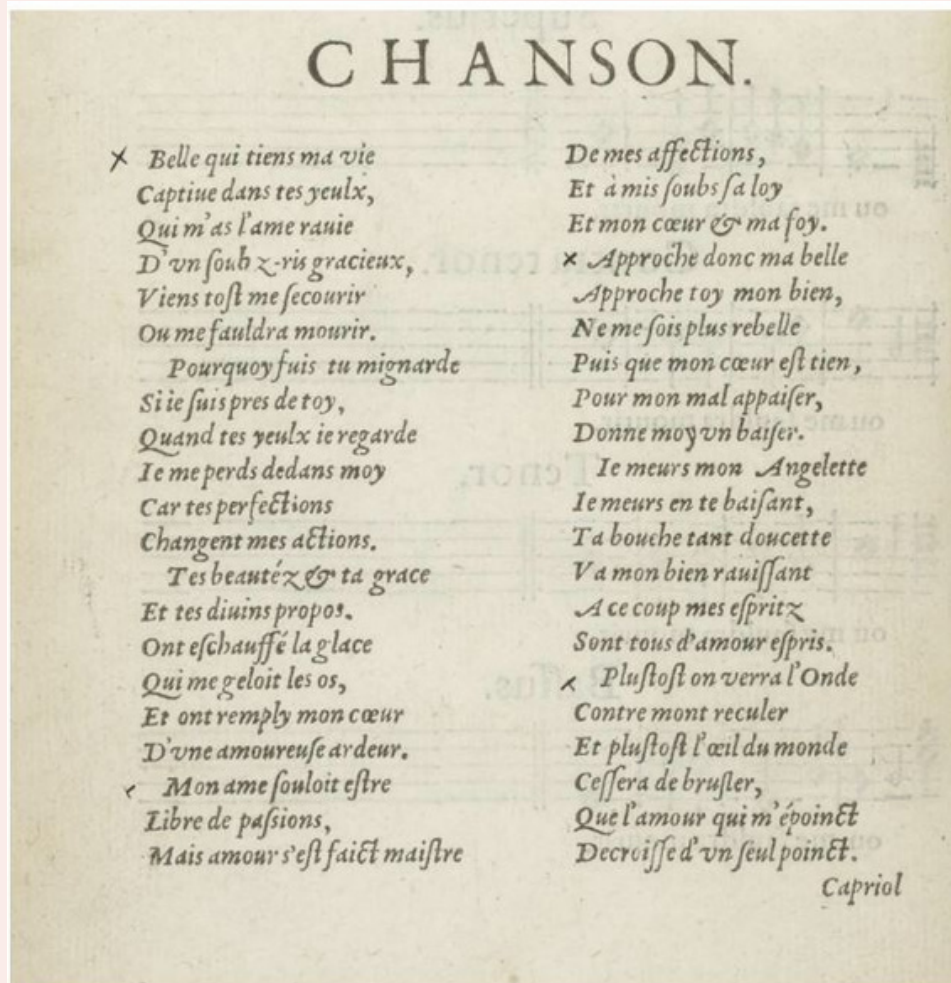 CHANSON.
Belle qui tiens ma vie
Captiue dans tes yeulx,
Qui m'as l'ame rauie
D'vn ſoubz-ris gracieux,
Viens toſt me ſecourir
Ou me fauldra mourir.
Pourquoy fuis tu mignarde
Si ie ſuis pres de toy,
Quand tes yeulx ie regarde
Ie me perds dedans moy
Car tes perfections
Changent mes actions.
Tes beautéz & ta grace
Et tes diuins propos.
Ont eſchauffé la glace
Qui me geloit les os,
Et ont remply mon cœur
D'vne amoureuſe ardeur.
Mon ame ſouloit eſtre
Libre de paſsions,
Mais amour s'eſt faict maiſtre
De mes affections,
Et à mis ſoubs ſa loy
Et mon cœur & ma foy.
Approche donc ma belle
Approche toy mon bien,
Ne me ſois plus rebelle
Puis que mon cœur eſt tien,
Pour mon mal appaiſer,
Donne moy vn baiſer.
Ie meurs mon Angelette
Ie meurs en te baiſant,
Ta bouche tant doucette
Va mon bien rauiſſant
A ce coup mes eſpritz
Sont tous d'amour eſpris.
Pluſtoſt on verra l'Onde
Contre mont reculer
Et pluſtoſt l'œil du monde
Ceſſera de bruſler,
Que l'amour qui m'époinct
Decroiſſe d'vn ſeul poinct.
Capriol